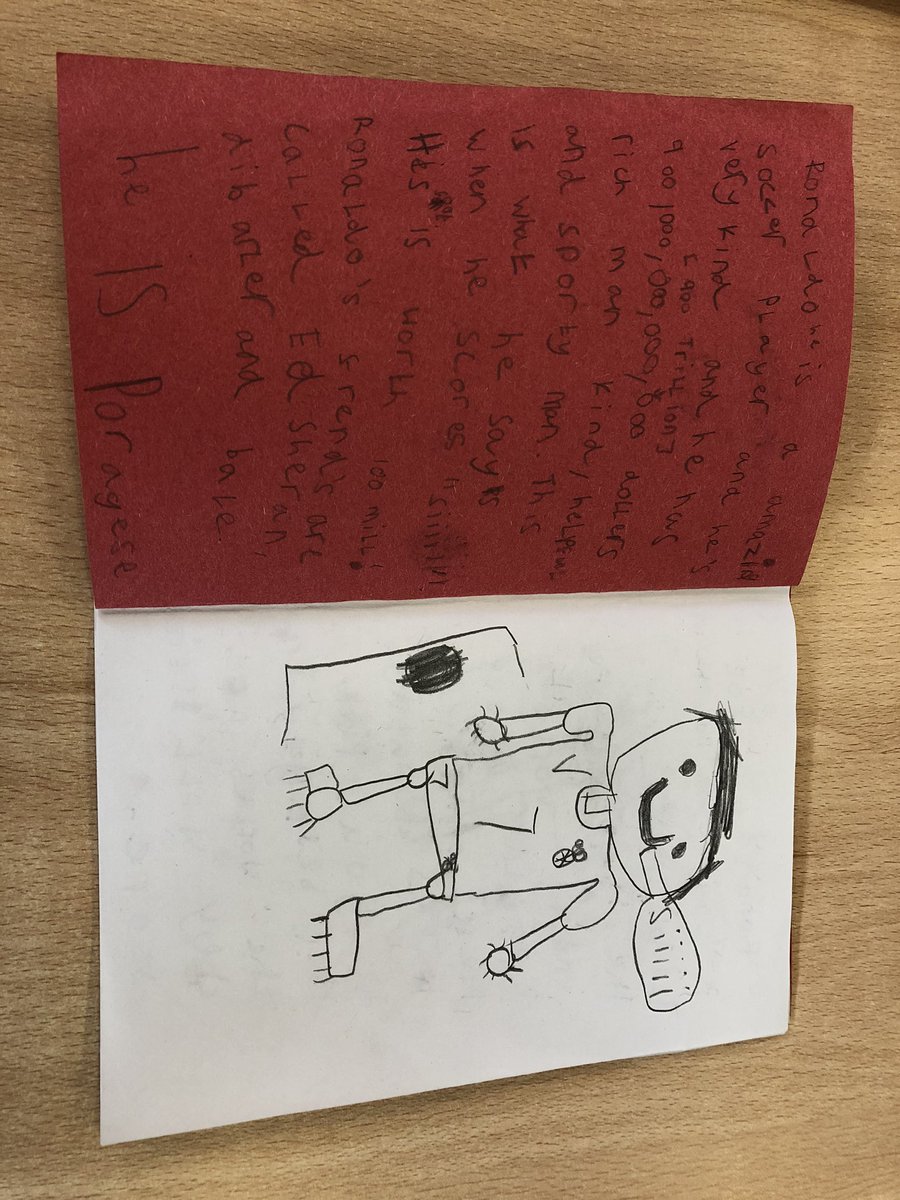 Ronaldo he is a amazig
soccer Player and he's
very kind and he has
900 trillion
900,000,000,000,000 dollers
rich man kind, helpful,
and sporty man. This
is what he says
when he scores "siiiiiii
He's is worth 100 mill.
Ronaldo's frend's are
called Ed Sheran,
dib arzer and bake.
he IS Poragese
Siiiiii
7